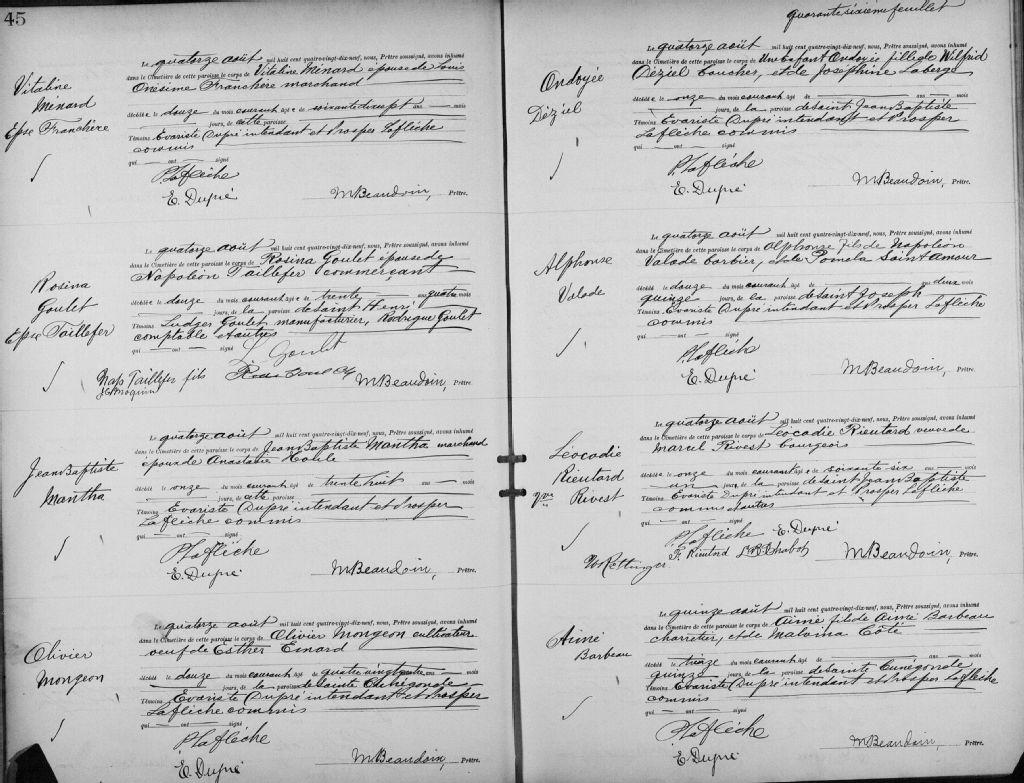 45
Vitaline
Menard
Epse Franchère
Le quatorze août mil huit cent quatre-vingt-dix-neuf, nous, Prêtre soussigné, avons inhumé
dans le Cimetière de cette paroisse le corps de Vitaline Menard épouse de Louis
Onésime Franchère marchand
décédée le douze du mois courant âgée de soixante dix sept ans — mois
— jours, de cette paroisse
Témoins Evariste Dupré intendant et Prosper Laflèche
commis
qui — ont — signé
P. Laflèche
E. Dupré M Beaudoin, Prêtre.
Rosina
Goulet
Epse Taillefer
Le quatorze août mil huit cent quatre-vingt-dix-neuf, nous, Prêtre soussigné, avons inhumé
dans le Cimetière de cette paroisse le corps de Rosina Goulet épouse de
Napoléon Taillefer commerçant
décédée le douze du mois courant âgée de trente ans quatre mois
— jours, de la paroisse de Saint Henri
Témoins Ludger Goulet manufacturier, Rodrigue Goulet
comptable et autres
qui — ont — signé
L. Goulet
Nap Taillefer fils M Beaudoin, Prêtre.
Jean Baptiste
Mantha
Le quatorze août mil huit cent quatre-vingt-dix-neuf, nous, Prêtre soussigné, avons inhumé
dans le Cimetière de cette paroisse le corps de Jean Baptiste Mantha marchand
époux de Anastasie Houle
décédé le onze du mois courant âgé de trente huit ans — mois
— jours, de cette paroisse
Témoins Evariste Dupré intendant et Prosper
Laflèche commis
qui — ont — signé
P Laflèche
E. Dupré M Beaudoin, Prêtre.
Olivier
Mongeon
Le quatorze août mil huit cent quatre-vingt-dix-neuf, nous, Prêtre soussigné, avons inhumé
dans le Cimetière de cette paroisse le corps de Olivier Mongeon cultivateur
veuf de Esther Emard
décédé le douze du mois courant âgé de quatre vingt quatre ans — mois
— jours, de la paroisse de Sainte Cunégonde
Témoins Evariste Dupré intendant et Prosper
Laflèche commis
qui — ont — signé
P Laflèche
E. Dupré M Beaudoin, Prêtre.
quarante sixième feuillet
Ondoyée
Déziel
Le quatorze août mil huit cent quatre-vingt-dix-neuf, nous, Prêtre soussigné, avons inhumé
dans le Cimetière de cette paroisse le corps de Une Enfant Ondoyée fille de Wilfrid
Déziel boucher, et de Joséphine Laberge
décédée le onze du mois courant âgée de — ans — mois
— jours, de la paroisse de Saint Jean Baptiste
Témoins Evariste Dupré intendant et Prosper
Laflèche commis
qui — ont — signé
P. Laflèche
E. Dupré M Beaudoin, Prêtre.
Alphonse
Valade
Le quatorze août mil huit cent quatre-vingt-dix-neuf, nous, Prêtre soussigné, avons inhumé
dans le Cimetière de cette paroisse le corps de Alphonse fils de Napoléon
Valade barbier, et de Pomela Saint Amour
décédé le douze du mois courant âgé de — ans deux mois
quinze jours, de la paroisse de Saint Joseph
Témoins Evariste Dupré intendant et Prosper Laflèche
commis
qui — ont — signé
P. Laflèche
E. Dupré M Beaudoin, Prêtre.
Léocadie
Rieutard
Vve Rivest
Le quatorze août mil huit cent quatre-vingt-dix-neuf, nous, Prêtre soussigné, avons inhumé
dans le Cimetière de cette paroisse le corps de Léocadie Rieutard veuve de
Marcel Rivest bourgeois
décédée le onze du mois courant âgée de soixante six ans — mois
— jours, de la paroisse de Saint Jean Baptiste
Témoins Evariste Dupré intendant et Prosper Laflèche
commis et autres
qui — ont — signé
P. Laflèche E. Dupré
F. Rieutord M Beaudoin, Prêtre.
Aimé
Barbeau
Le quinze août mil huit cent quatre-vingt-dix-neuf, nous, Prêtre soussigné, avons inhumé
dans le Cimetière de cette paroisse le corps de Aimé fils de Aimé Barbeau
charretier, et de Malvina Côté
décédé le treize du mois courant âgé de — ans — mois
quinze jours, de la paroisse de Sainte Cunégonde
Témoins Evariste Dupré intendant et Prosper Laflèche
commis
qui — ont — signé
P Laflèche
E. Dupré M Beaudoin, Prêtre.